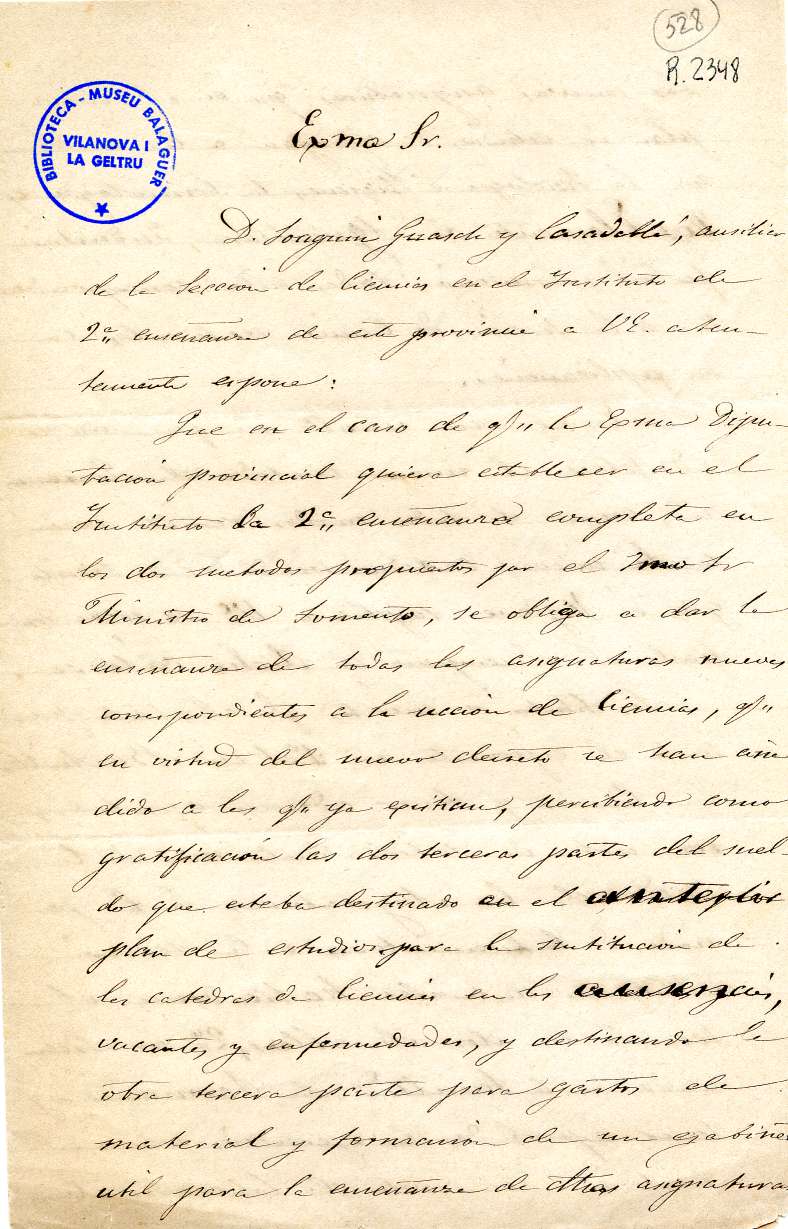 528
R. 2348
BIBLIOTECA - MUSEU BALAGUER
VILANOVA I
LA GELTRU
Exmo Sr.
D. Joaquin Guasch y Casadellá, ausiliar
de la Seccion de Ciencias en el Instituto de
2ª enseñanza de esta provincia a VE. aten-
tamente espone:
Que en el caso de q'' la Exma Dipu-
tación provincial quiera establecer en el
Instituto la 2ª enseñanza completa en
los dos metodos propuestos por el Sr
Ministro de Fomento, se obliga a dar la
enseñanza de todas las asignaturas nuevas
correspondientes a la sección de Ciencias, q''
en virtud del nuevo decreto se han aña
dido a las q'' ya existian, percibiendo como
gratificación las dos terceras partes del suel-
do que estaba destinado en el anterior
plan de estudios para la sustitución de
las catedras de Ciencias en las ausencias,
vacantes y enfermedades, y destinando la
otra tercera parte para gastos de
material y formacion de un gabinete
util para la enseñanza de dhas asignaturas